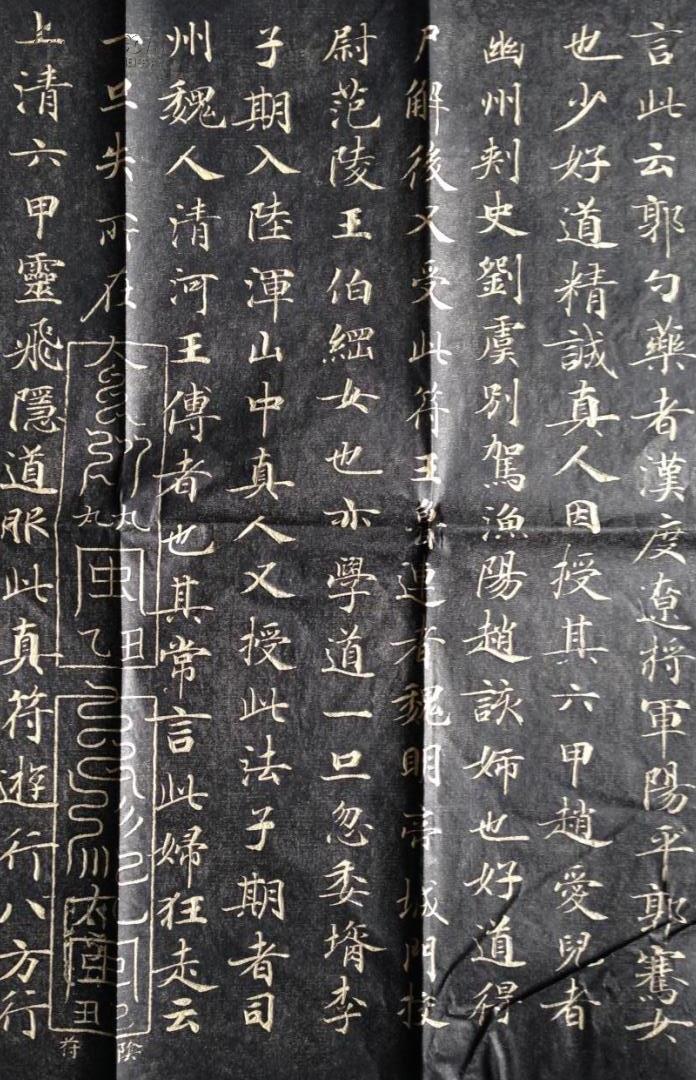 言此云郭勺藥者漢度遼將軍陽平郭騫女
也少好道精誠真人因授其六甲趙愛兒者
幽州刾史劉虞別駕漁陽趙該姊也好道得
尸解後又受此符王魯連者魏明帝城門挍
尉范陵王伯綱女也亦學道一旦忽委壻李
子期入陸渾山中真人又授此法子期者司
州魏人清河王傅者也其常言此婦狂走云
一旦失所在
陰符
上清六甲靈飛隱道服此真符遊行八方行